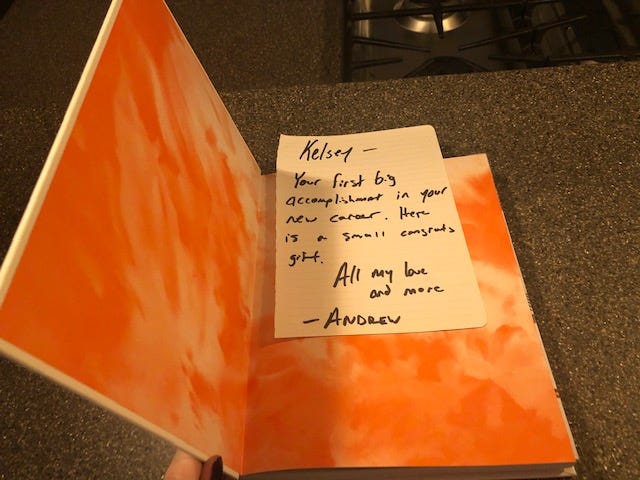 Kelsey —
Your first big
accomplishment in your
new career. Here
is a small congrats
gift.
All my love
and more
— ANDREW